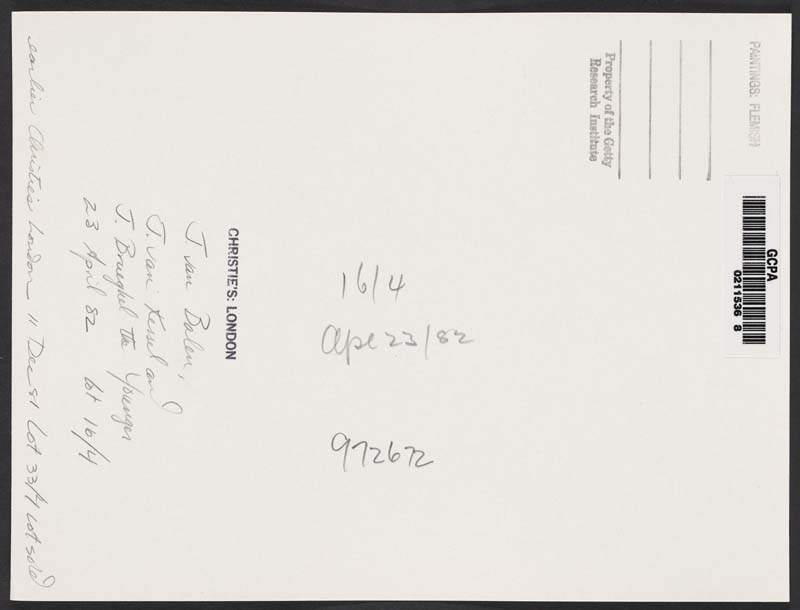 PAINTINGS: FLEMISH
Property of the Getty
Research Institute
GCPA
0211536 8
CHRISTIE'S: LONDON
J van Balen,
J. van Kessel and
J. Brueghel the Younger
23 April 82 lot 16/4
earlier Christie's London 11 Dec 81 Lot 33/4 not sold
16/4
Apr 23/82
972672